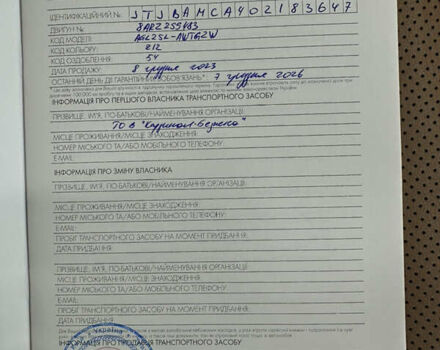 ІДЕНТИФІКАЦІЙНИЙ №: JTJBAMCA402183647
ДВИГУН № 8ARZ255483
КОД МОДЕЛІ: AGZ25L-AWTGZW
КОД КОЛЬОРУ: 212
КОД ОЗДОБЛЕННЯ: 54
ДАТА ПРОДАЖУ: 8 грудня 2023
ОСТАННІЙ ДЕНЬ ДІЇ ГАРАНТІЙНИХ ЗОБОВ'ЯЗАНЬ* 7 грудня 2026
ІНФОРМАЦІЯ ПРО ПЕРШОГО ВЛАСНИКА ТРАНСПОРТНОГО ЗАСОБУ
ПРІЗВИЩЕ, ІМ'Я, ПО-БАТЬКОВІ/НАЙМЕНУВАННЯ ОРГАНІЗАЦІЇ:
ТОВ
МІСЦЕ ПРОЖИВАННЯ/МІСЦЕ ЗНАХОДЖЕННЯ:
НОМЕР МІСЬКОГО ТА/АБО МОБІЛЬНОГО ТЕЛЕФОНУ:
E-MAIL:
ІНФОРМАЦІЯ ПРО ЗМІНУ ВЛАСНИКА
ПРІЗВИЩЕ, ІМ'Я, ПО-БАТЬКОВІ/НАЙМЕНУВАННЯ ОРГАНІЗАЦІЇ:
МІСЦЕ ПРОЖИВАННЯ/МІСЦЕ ЗНАХОДЖЕННЯ:
НОМЕР МІСЬКОГО ТА/АБО МОБІЛЬНОГО ТЕЛЕФОНУ:
E-MAIL:
ПРОБІГ ТРАНСПОРТНОГО ЗАСОБУ НА МОМЕНТ ПРИДБАННЯ:
ДАТА ПРИДБАННЯ:
ПРІЗВИЩЕ, ІМ'Я, ПО-БАТЬКОВІ/НАЙМЕНУВАННЯ ОРГАНІЗАЦІЇ:
МІСЦЕ ПРОЖИВАННЯ/МІСЦЕ ЗНАХОДЖЕННЯ:
НОМЕР МІСЬКОГО ТА/АБО МОБІЛЬНОГО ТЕЛЕФОНУ:
E-MAIL:
ПРОБІГ ТРАНСПОРТНОГО ЗАСОБУ НА МОМЕНТ ПРИДБАННЯ:
ДАТА ПРИДБАННЯ:
Україна
ІНФОРМАЦІЯ ПРО ПРОДАВЦЯ ТРАНСПОРТНОГО ЗАСОБУ